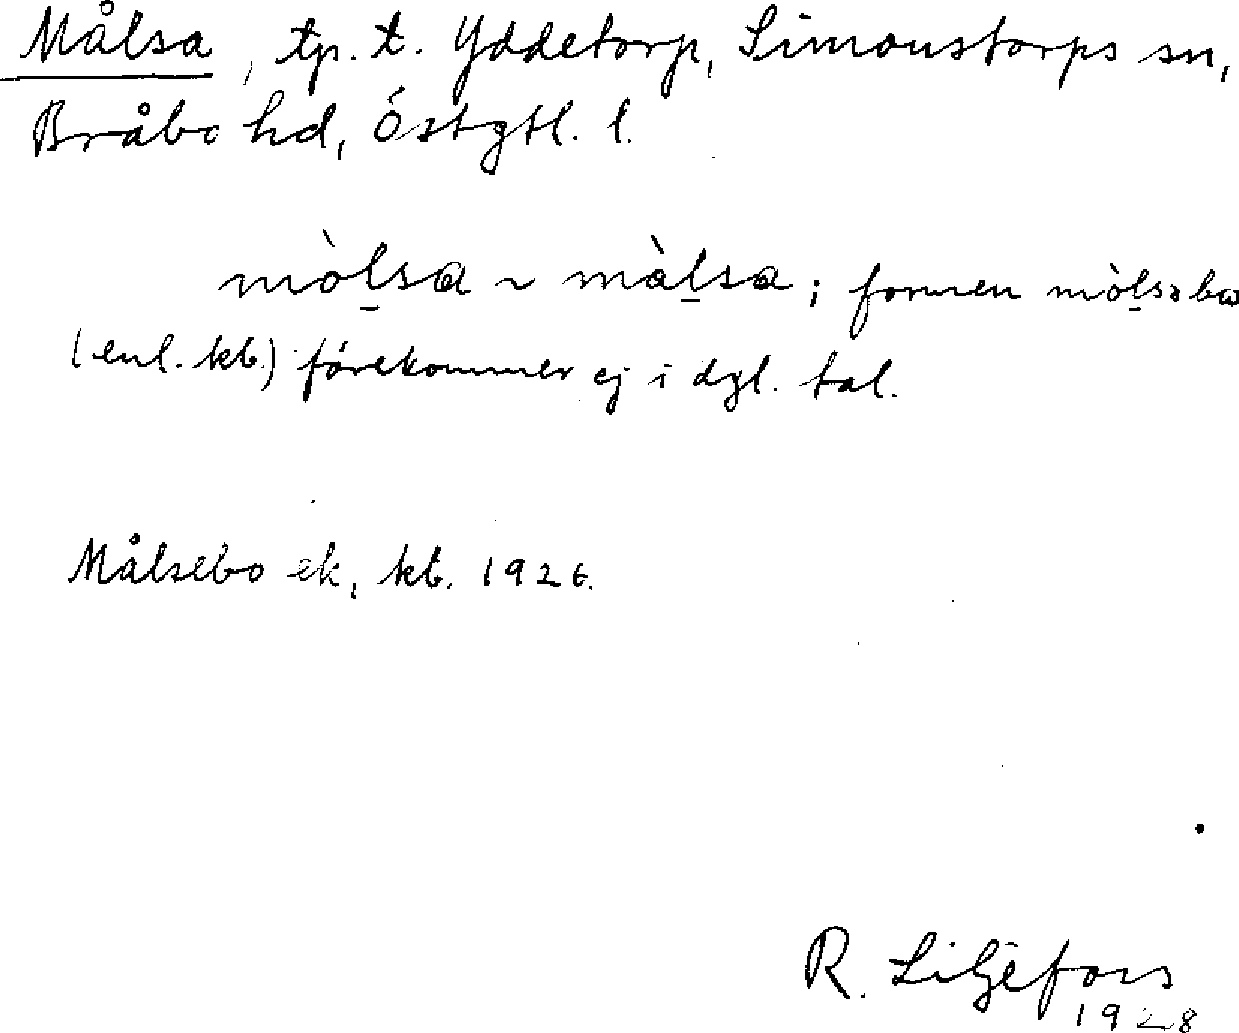 Målsa, tp. t. Yddetorp, Simonstorps sn,
Bråbo hd, Östgtl. l.
mòl̠sa ~ màl̠sa; formen mòl̠səbω
(enl. kb.) förekommer ej i dgl. tal.
Målsebo ek, kb. 1926.
R. Liljefors
1928